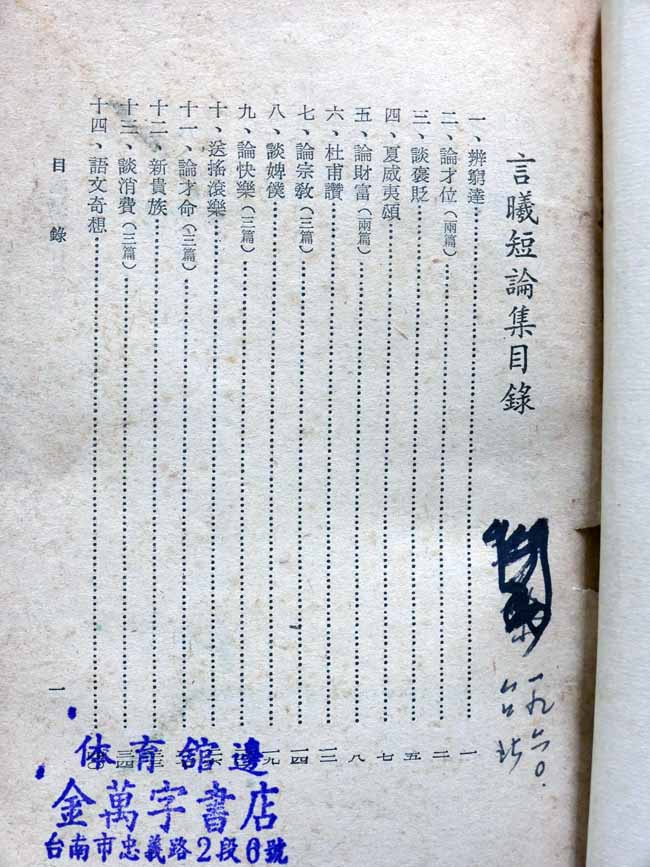 言曦短論集目錄
一、辨窮達……一
二、論才位(兩篇)……二
三、談褒貶……五
四、夏威夷頌……七
五、論財富(兩篇)……八
六、杜甫讚……
七、論宗教(三篇)……
八、談婢僕……
九、論快樂(三篇)……
十、送搖滾樂……
十一、論才命(三篇)……
十二、新貴族……
十三、談消費(三篇)……
十四、語文奇想……
目錄
一
一九六〇.
台北
体育舘邊
金萬字書店
台南市忠義路2段6號